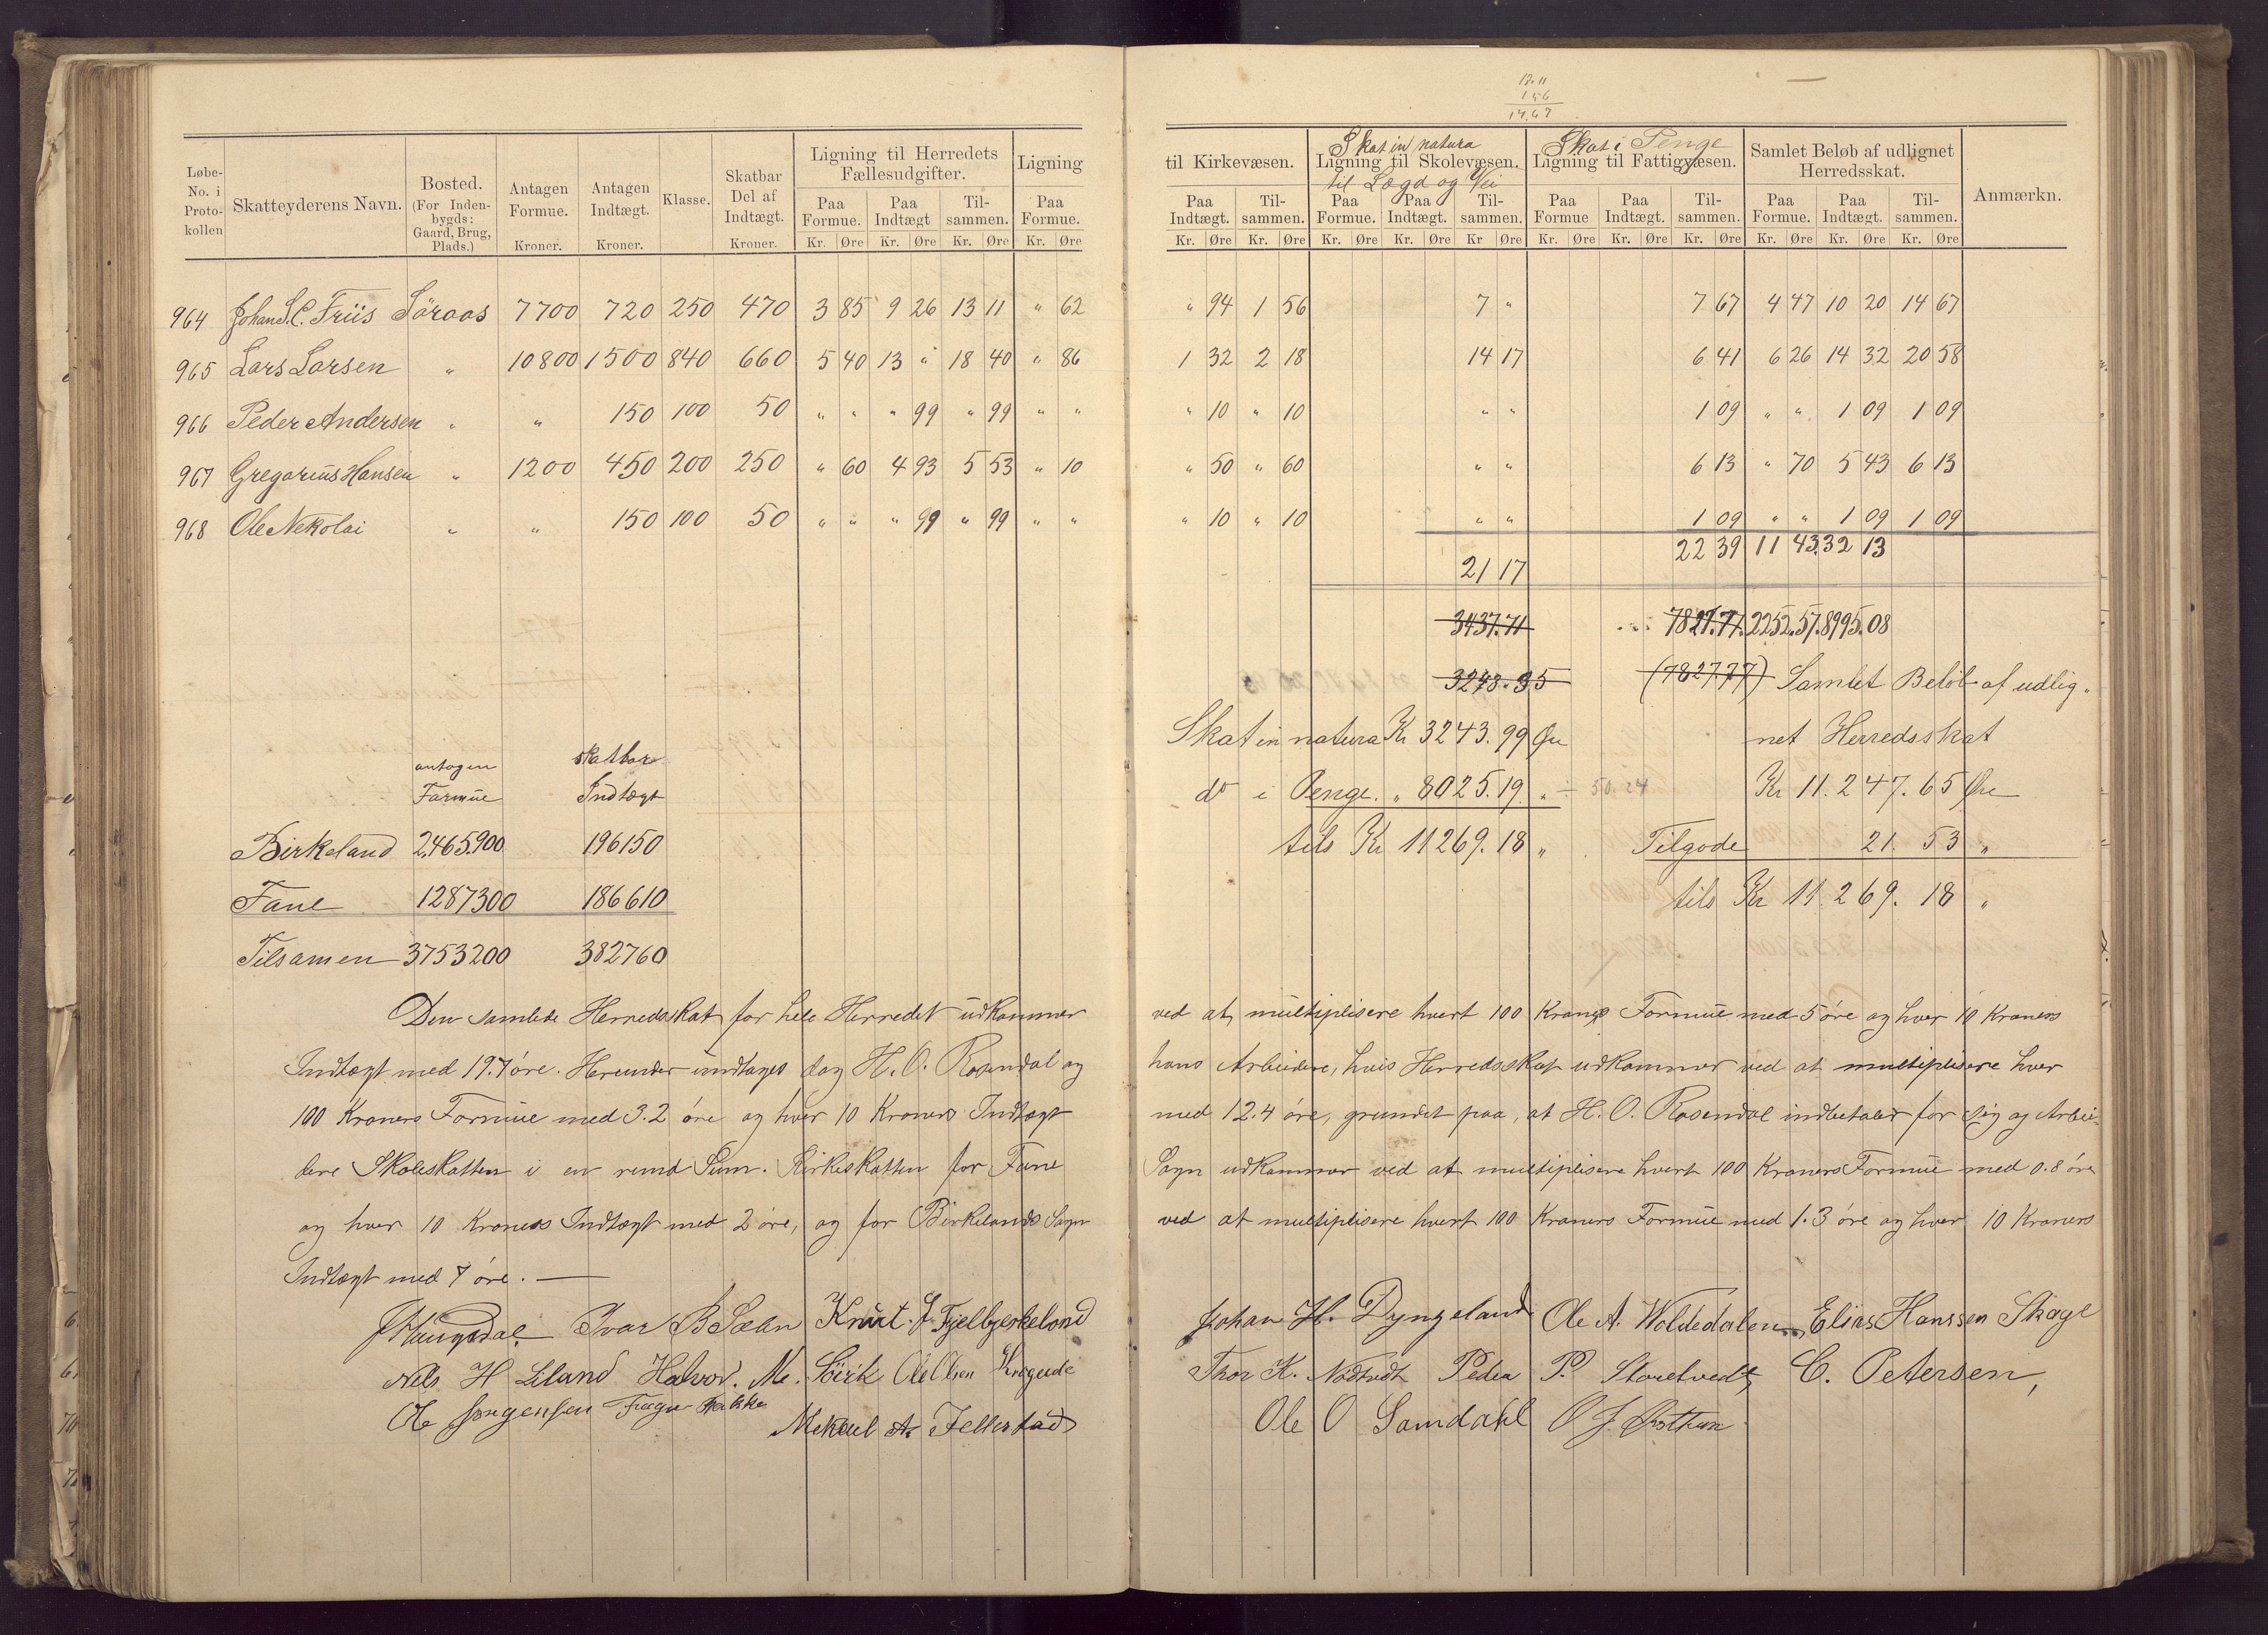 13.11
1 56
14.67
Løbe-No. i Proto-kollen | Skatteyderens Navn. | Bosted. (For Inden-bygds: Gaard, Brug, Plads.) | Antagen Formue. Kroner. | Antagen Indtægt. Kroner. | Klasse. | Skatbar Del af Indtægt. Kroner. | Ligning til Herredets Fællesudgifter. | Ligning
til Kirkevæsen. | Skat in natura Ligning til Skolevæsen. til Lægd og Vei | Skat i Penge Ligning til Fattigvæsen. | Samlet Beløb af udlignet Herredsskat. | Anmærkn.
Paa Formue. | Paa Indtægt | Til-sammen. | Paa Formue. | Paa Indtægt. | Til-sammen. | Paa Formue. | Paa Indtægt. | Til-sammen. | Paa Formue | Paa Indtægt. | Til-sammen. | Paa Formue. | Paa Indtægt. | Til-sammen.
Kr. Øre Kr. Øre Kr. Øre Kr. Øre Kr. Øre Kr. Øre Kr. Øre Kr. Øre Kr Øre Kr. Øre Kr. Øre Kr. Øre Kr. Øre Kr. Øre Kr. Øre
964 Johan S.C. Friis Söraas 7700 720 250 470 3 85 9 26 13 11 " 62 " 94 1 56 7 " 7 67 4 47 10 20 14 67
965 Lars Larsen " 10800 1500 840 660 5 40 13 " 18 40 " 86 1 32 2 18 14 17 6 41 6 26 14 32 20 58
966 Peder Andersen " " 150 100 50 " " " 99 " 99 " " " 10 " 10 " " 1 09 " " 1 09 1 09
967 Gregorius Hansen " 1200 450 200 250 " 60 4 93 5 53 " 10 " 50 " 60 " " 6 13 " 70 5 43 6 13
968 Ole Nekolai " " 150 100 50 " " " 99 " 99 " " " 10 " 10 " " 1 09 " " 1 09 1 09
22 39 11 43 32 13
21 17
3437.71 7827.77. 2252.57. 8995.08
3243.95 (7827.77) Samlet Beløb af udlig"
Skat in natura Kr 3243.99 Øre net Herredsskat
do i Penge. " 8025.19. " ÷ 50.24 Kr 11.247.65 Øre
tils Kr 11269.18 " Tilgode 21. 53 "
tils Kr 11.269. 18 "
antagen skatbar
Formue Indtægt
Birkeland 2,465.900 196150
Fane 1287300 186610
Tilsamen 3753200 382760
Den samlede Herredsskat for hele Herredet udkommer ved at multiplisere hvert 100 Kroners Formue med 5 øre og hver 10 Kroners
Indtægt med 19.7 øre. Herunder undtages dog H. O. Rosendal og hans Arbeidere, hvis Herredsskat udkommer ved at multiplisere hver
100 Kroners Formue med 3.2 øre og hver 10 Kroners Indtægt med 12.4 øre, grundet paa, at H. O. Rosendal indbetaler for sig og Arbei-
dere Skoleskatten i en rund Sum. Kirkeskatten for Fane Sogn udkommer ved at multiplisere hvert 100 Kroners Formue med 0.8 øre
og hver 10 Kroners Indtægt med 2 øre, og for Birkelands Sogn ved at multiplisere hvert 100 Kroners Formue med 1.3 øre og hver 10 Kroners
Indtægt med 7 øre. —
J Haugsdal. Ivar B Sælen Knut. J Fjelbjerkeland Johan H. Dyngeland Ole A. Woldedalen Elias Hanssen Skage
Nels H Liland Halvor. M. Søvik Ole Olsen Thor K. Nødtvedt Peder P. Storetvedt, C. Petersen,
Ole Jørgensen Mekkel A. Fellestad Ole O Samdahl O J